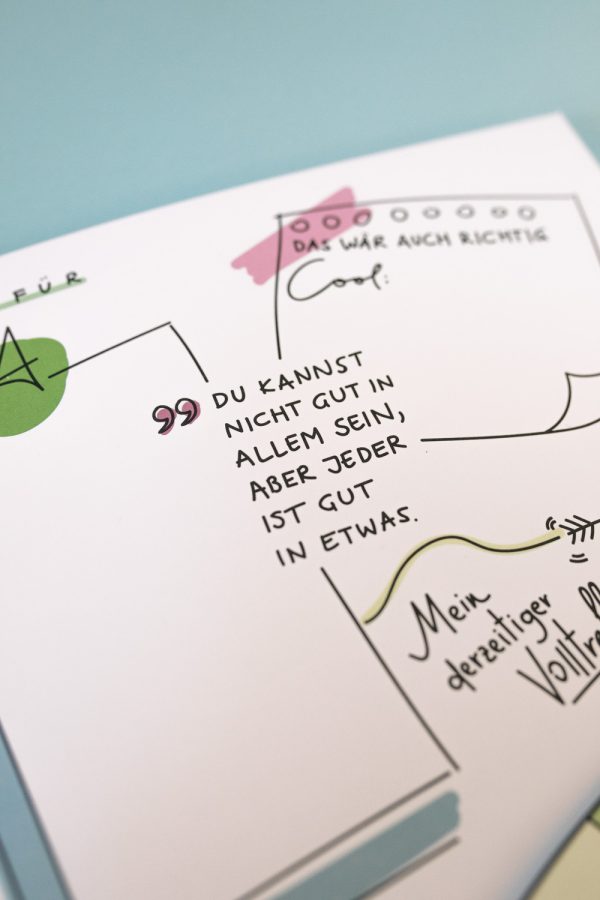 DAS WÄR AUCH RICHTIG
Cool:
FÜR
A
„ DU KANNST
NICHT GUT IN
ALLEM SEIN,
ABER JEDER
IST GUT
IN ETWAS.
Mein
derzeitiger